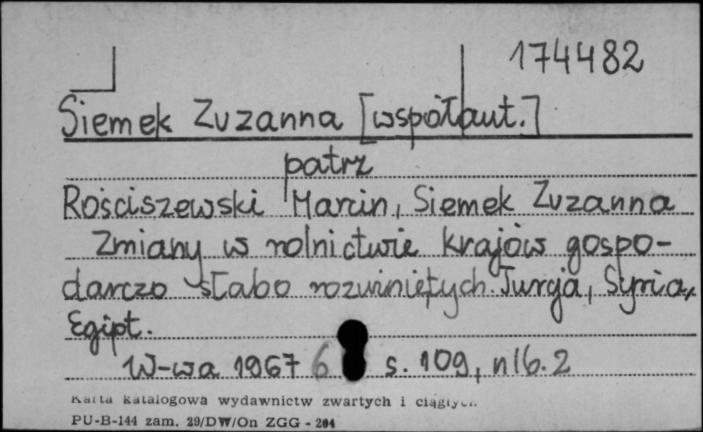 174482
Siemek Zuzanna [współaut.]
patrz
Rościszewski Marcin, Siemek Zuzanna
Zmiany w rolnictwie krajów gospo-
darczo słabo rozwiniętych. Turcja, Syria,
Egipt.
W-wa 1967 6 s. 109, nlb. 2
Karta katalogowa wydawnictw zwartych i ciągłych
PU-B-144 zam. 29/DW/On ZGG - 204